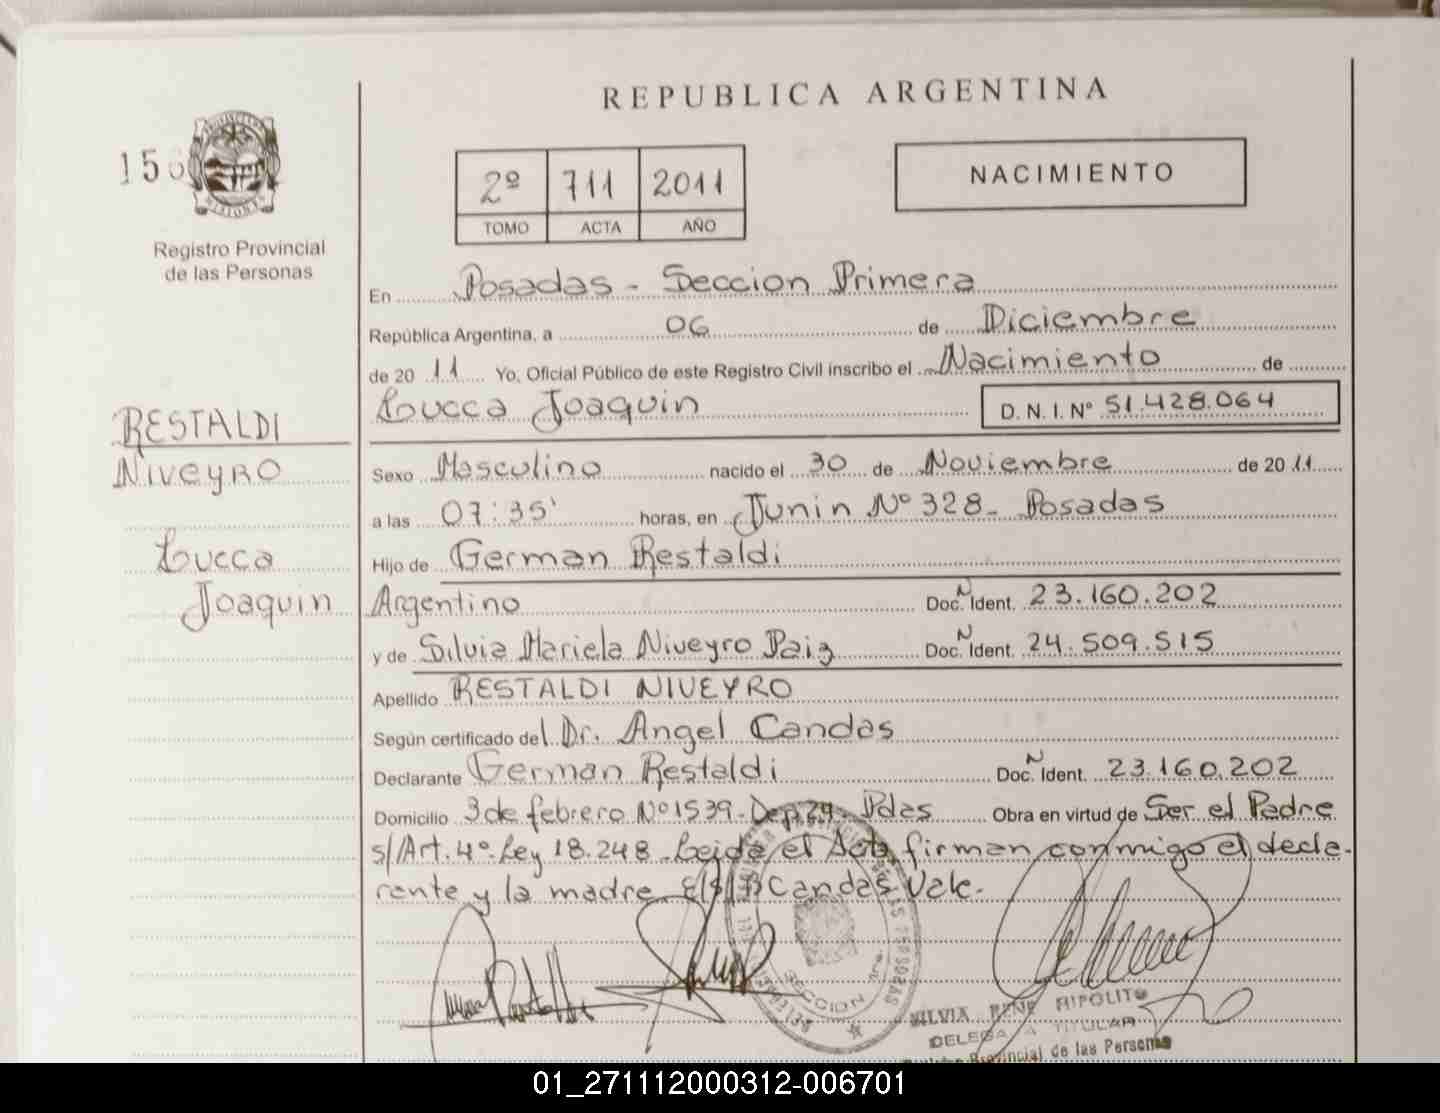 REPUBLICA ARGENTINA
15
2º 711 2011
TOMO ACTA AÑO
NACIMIENTO
Registro Provincial
de las Personas
En Posadas - Seccion Primera
República Argentina, a 06 de Diciembre
de 2011 Yo, Oficial Público de este Registro Civil inscribo el Nacimiento de
Lucca Joaquin D.N.I. Nº 51.428.064
RESTALDI
NIVEYRO
Lucca
Joaquin
Sexo Masculino nacido el 30 de Noviembre de 2011
a las 07:35' horas, en Junin Nº 328 - Posadas
Hijo de German Restaldi
Argentino Doc. N Ident. 23.160.202
y de Silvia Mariela Niveyro Paiz Doc. N Ident. 24.509.515
Apellido RESTALDI NIVEYRO
Según certificado del Dr. Angel Candas
Declarante German Restaldi Doc. N Ident. 23.160.202
Domicilio 3 de febrero Nº 1539 - Dep. - Pdas Obra en virtud de Ser el Padre
s/Art. 4º. Ley 18.248. Leida el Acta firman conmigo el decla-
rante y la madre. Candas Vale.
SECCION 1ra.
SILVIA RENE HIPOLITO
DELEGADA TITULAR
Provincial de las Personas
01_271112000312-006701